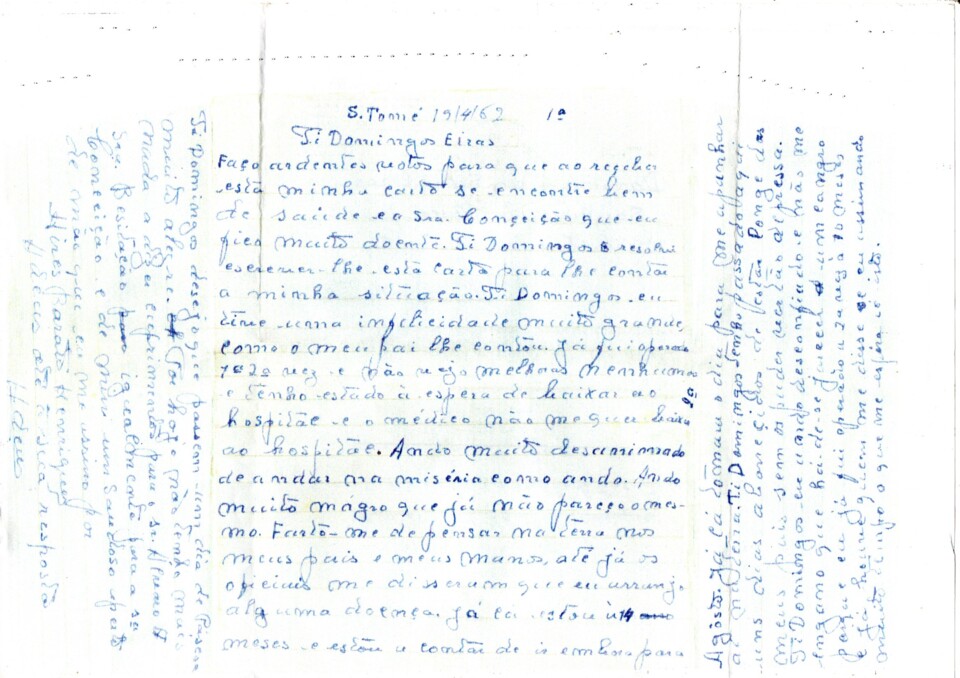 S. Tomé 19/4/62 1ª
Ti Domingos Eiras
Faço ardentes votos para que ao receber
está minha cartô se encontre bem
de saúde e a Sra. Conceição que eu
fico muito doente. Ti Domingos resolvi
escrever-lhe está carta para lhe contá
a minha situação. Ti Domingos eu
tive uma infelicidade muito grande,
como o meu pai lhe contou. Já fui operado
1ª 2ª vez e não vejo melhoras nenhumas
e tenho estado à espera de baixar ao
hospitãe e o médico não me quer baixar
ao hospitãe. Ando muito desanimado
de andar na miséria como ando. Ando
muito mágro que já não pareço o mes-
mo. Fartô-me de pensar na terra nos
meus pais e meus manos, até já os
oficiais me disseram que eu arranjo
alguma doença. Já cá estou à 14
meses e estou a contái de ir embora para
2ª
Agosto. Já cá o para me apanhar
ai na terra. Ti Domingos tenho passado aqui
uns dias aborrecidos de estár longe dos
meus pais sem puder vê-los tão depressa.
Ti Domingos eu ando desconfiado e não me
engano que hai-de-se fazer um sangro
porque eu já fui operado a 10 meses
e já houve quem me disse se eu assinando
muito tempo o que me espera é isto.
Ti Domingo desejo que passem um dia de Páscoa
muito alegre. Por hoje não tenho mais
nada a dizer cuprimentos para o sr. Álvaro
Sra. igualmente para a sa
Conceição e de mim um Saudoso apertô
de mão que eu me assino por
Henriques
Adeus até à sua respostá
Adeus